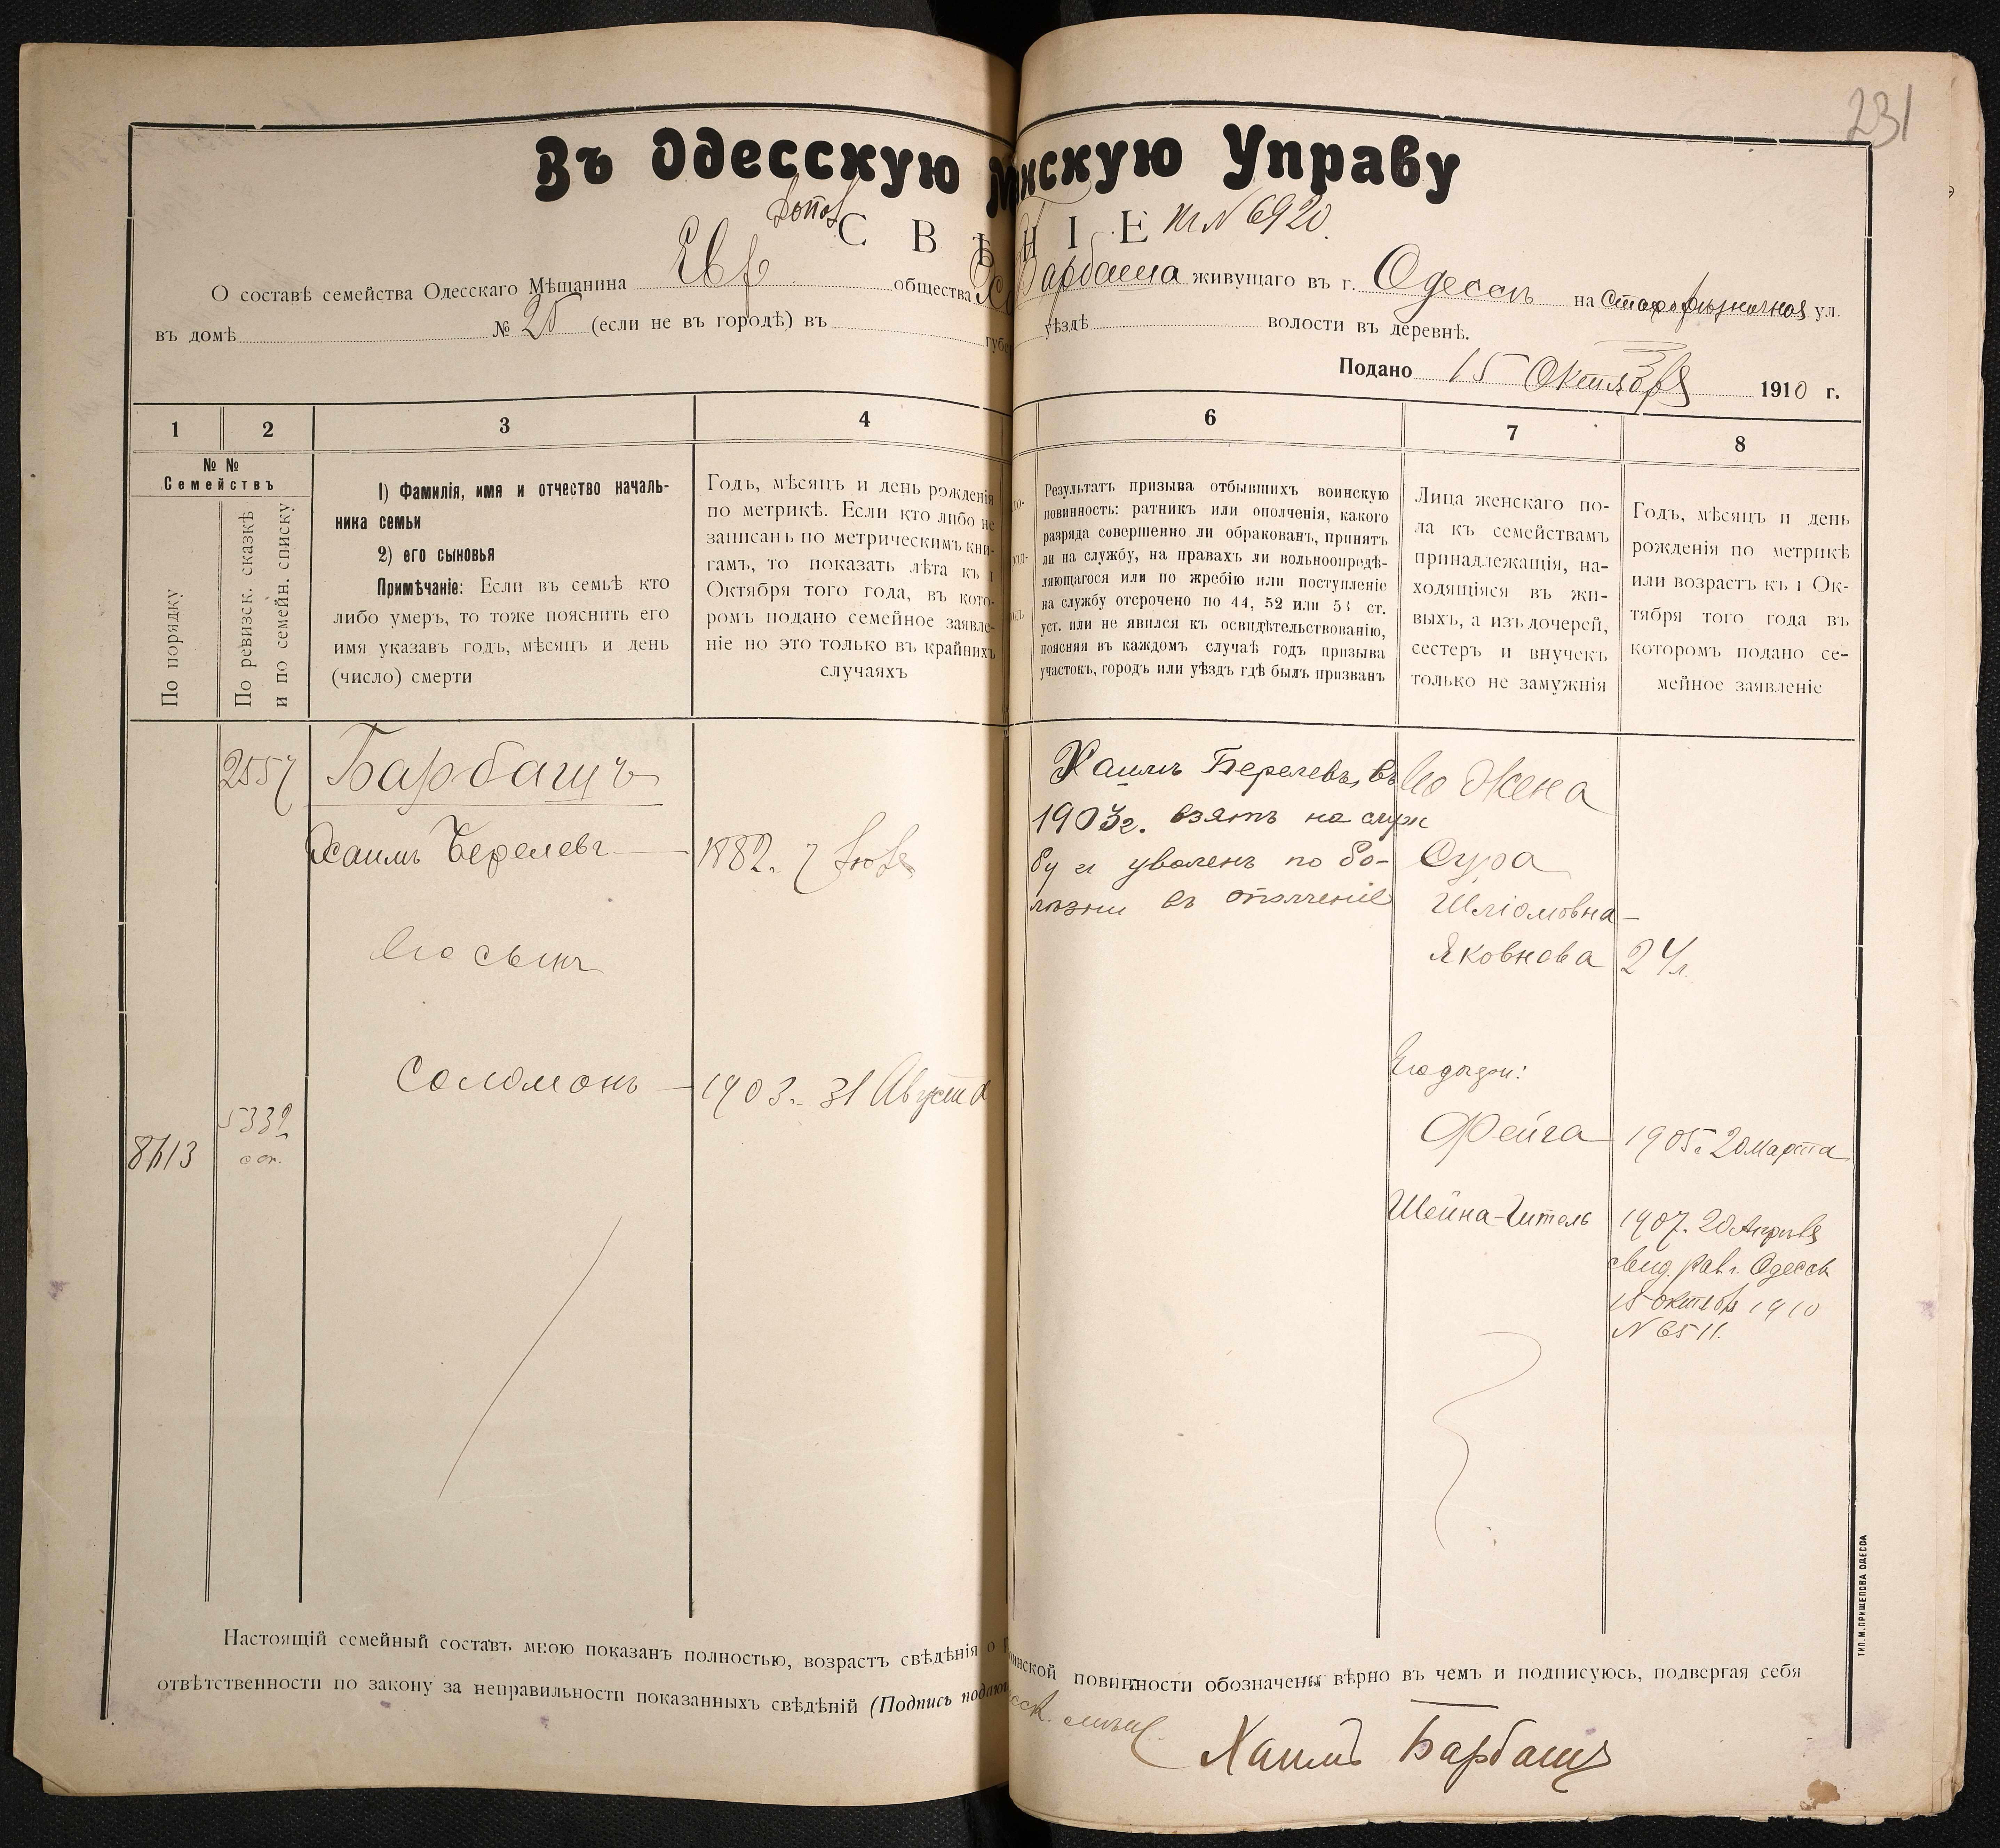 231
Въ Одесскую М нскую Управу
СВѢ НІЕ
№ 6920.
О составѣ семейства Одесскаго Мѣщанина Евр общества Барбаша живущаго въ г. Одессѣ на Старорѣзничной ул.
въ домѣ № 25 (если не въ городѣ) въ губе уѣздѣ волости въ деревнѣ.
Подано 15 Октября 1910 г.
1 2 3 4 6 7 8
№ №
Семействъ
По порядку
По ревизск. сказкѣ
и по семейн. списку
1) Фамилія, имя и отчество началь-
ника семьи
2) его сыновья
Примѣчаніе: Если въ семьѣ кто
либо умеръ, то тоже пояснить его
имя указавъ годъ, мѣсяцъ и день
(число) смерти
Годъ, мѣсяцъ и день рожденія
по метрикѣ. Если кто либо не
записанъ по метрическимъ кни-
гамъ, то показать лѣта къ 1
Октября того года, въ кото-
ромъ подано семейное заявле-
ніе но это только въ крайнихъ
случаяхъ
Результатъ призыва отбывшихъ воинскую
повинность: ратникъ или ополченія, какого
разряда совершенно ли обракованъ, принятъ
ли на службу, на правахъ ли вольноопредѣ-
ляющагося или по жребію или поступленіе
на службу отсрочено по 44, 52 или 53 ст.
уст. или не явился къ освидѣтельствованію,
поясняя въ каждомъ случаѣ годъ призыва
участокъ, городъ или уѣздъ гдѣ былъ призванъ
Лица женскаго по-
ла къ семействамъ
принадлежащія, на-
ходящіяся въ жи-
выхъ, а изъ дочерей,
сестеръ и внучекъ
только не замужнія
Годъ, мѣсяцъ и день
рожденія по метрикѣ
или возрастъ къ 1 Ок-
тября того года въ
которомъ подано се-
мейное заявленіе
2557
Барбашъ
Хаимъ Берелевъ
1882. 7
Его сынъ
Соломонъ
1903. 31 Августа
5332
8613
Хаимъ Берелевъ, въ
1903г. взятъ на служ
бу и уволенъ по бо-
лѣзни въ ополченіе
Его Жена
Сура
Шліомовна-
Яковнова 24 л.
Его дочери:
Фейга 1905. 20 марта
Шейна-Гитель 1907. 20 Апрѣля
свид. рав. г. Одессы
15 октября 1910
№ 6511.
Настоящій семейный составъ мною показанъ полностью, возрастъ свѣдѣнія о инской повинности обозначены вѣрно въ чемъ и подписуюсь, подвергая себя
отвѣтственности по закону за неправильности показанныхъ свѣдѣній (Подпись подаю
мѣщ.
Хаимъ Барбашъ
ТИП. М. ПРИЩЕПОВА ОДЕССА